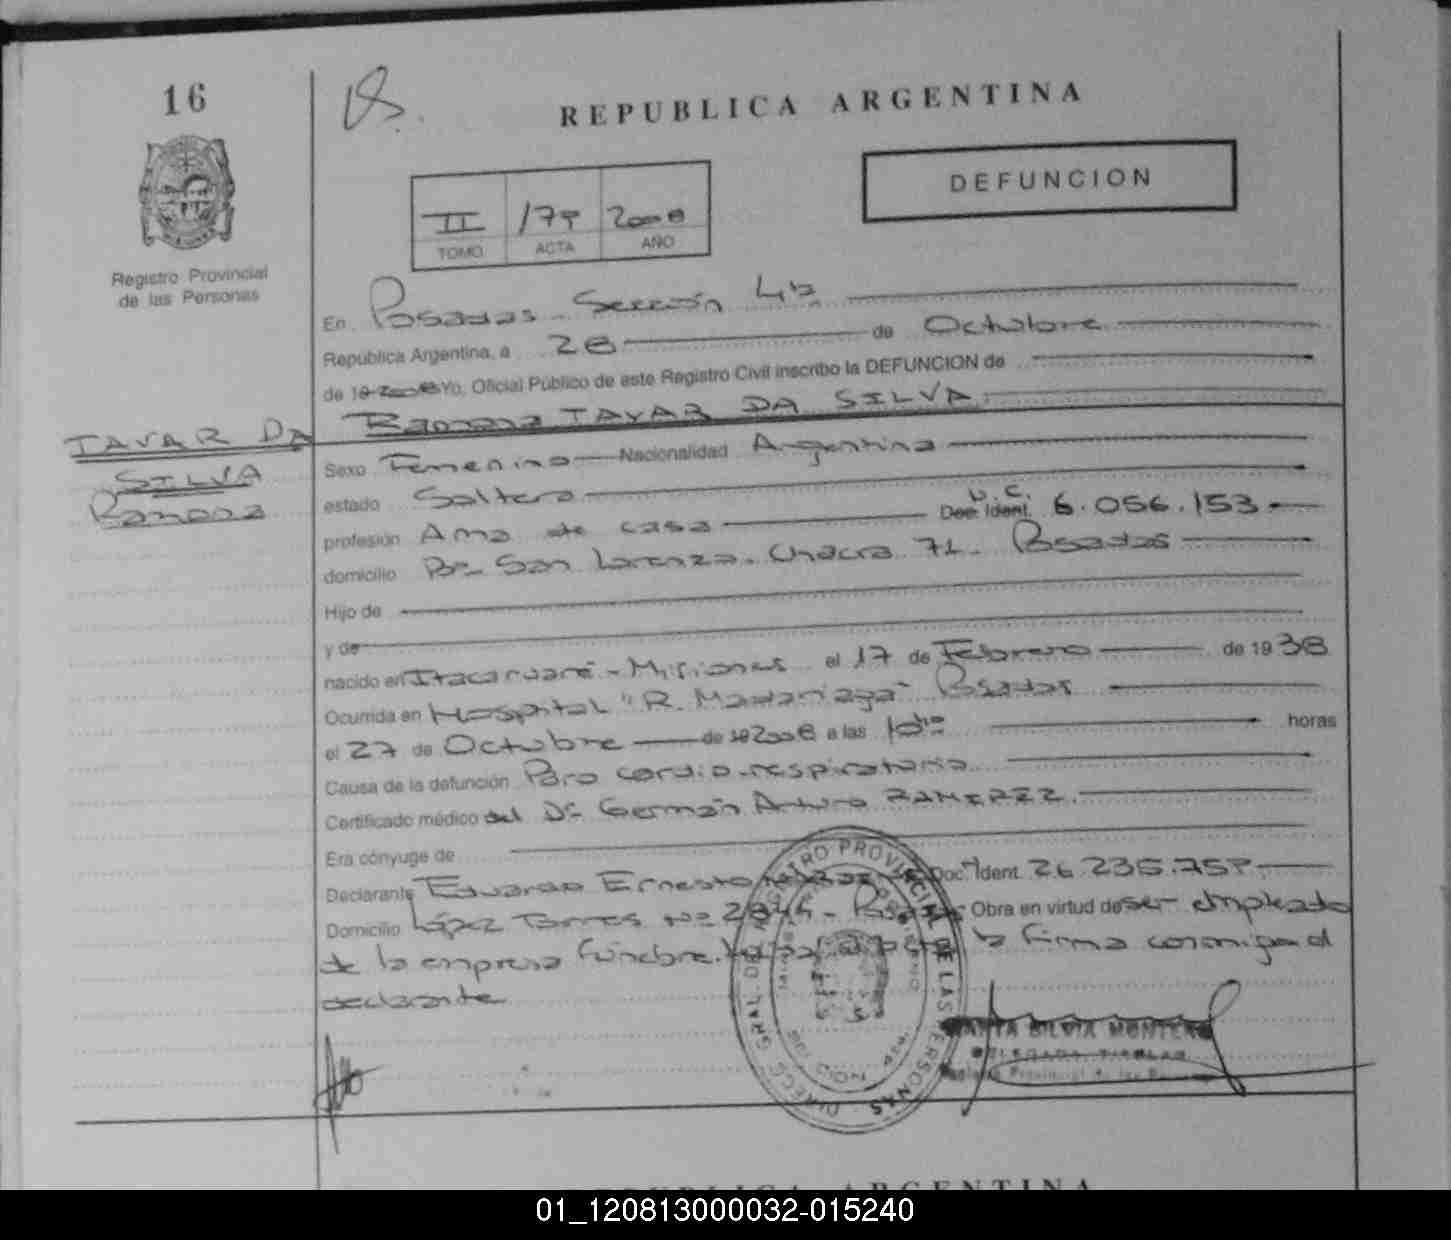 16
REPUBLICA ARGENTINA
DEFUNCION
II /79 2008
TOMO ACTA AÑO
Registro Provincial
de las Personas
En Posadas - Sección 4ta
Republica Argentina, a 28 de Octubre
de 19 2008 Yo, Oficial Público de este Registro Civil inscribo la DEFUNCION de
Ramona TAVAR DA SILVA
TAVAR DA
SILVA
Ramona
Sexo Femenino Nacionalidad Argentina
estado Soltera
profesión Ama de casa Doc. Ident. D.C. 6.056.153
domicilio Bº San Lorenzo - Chacra 71 - Posadas
Hijo de
y de
nacido en Itacaruaré - Misiones el 17 de Febrero de 1938
Ocurrida en Hospital "R. Madariaga" Posadas
el 27 de Octubre de 19 2008 a las horas
Causa de la defunción Paro cardio-respiratorio
Certificado médico del Dr. Germán Arturo RAMIREZ.
Era cónyuge de
Declarante Eduardo Ernesto Doc. Ident. 26.235.759
Domicilio López Torres Nº 2844 - Posadas Obra en virtud de ser empleado
de la empresa fúnebre. la firma conmigo el
declarante
REGISTRO PROVINCIAL DE LAS PERSONAS
MARTA SILVIA MONTERO
DELEGADA TITULAR
Registro Provincial de las Personas
REPUBLICA ARGENTINA
01_120813000032-015240